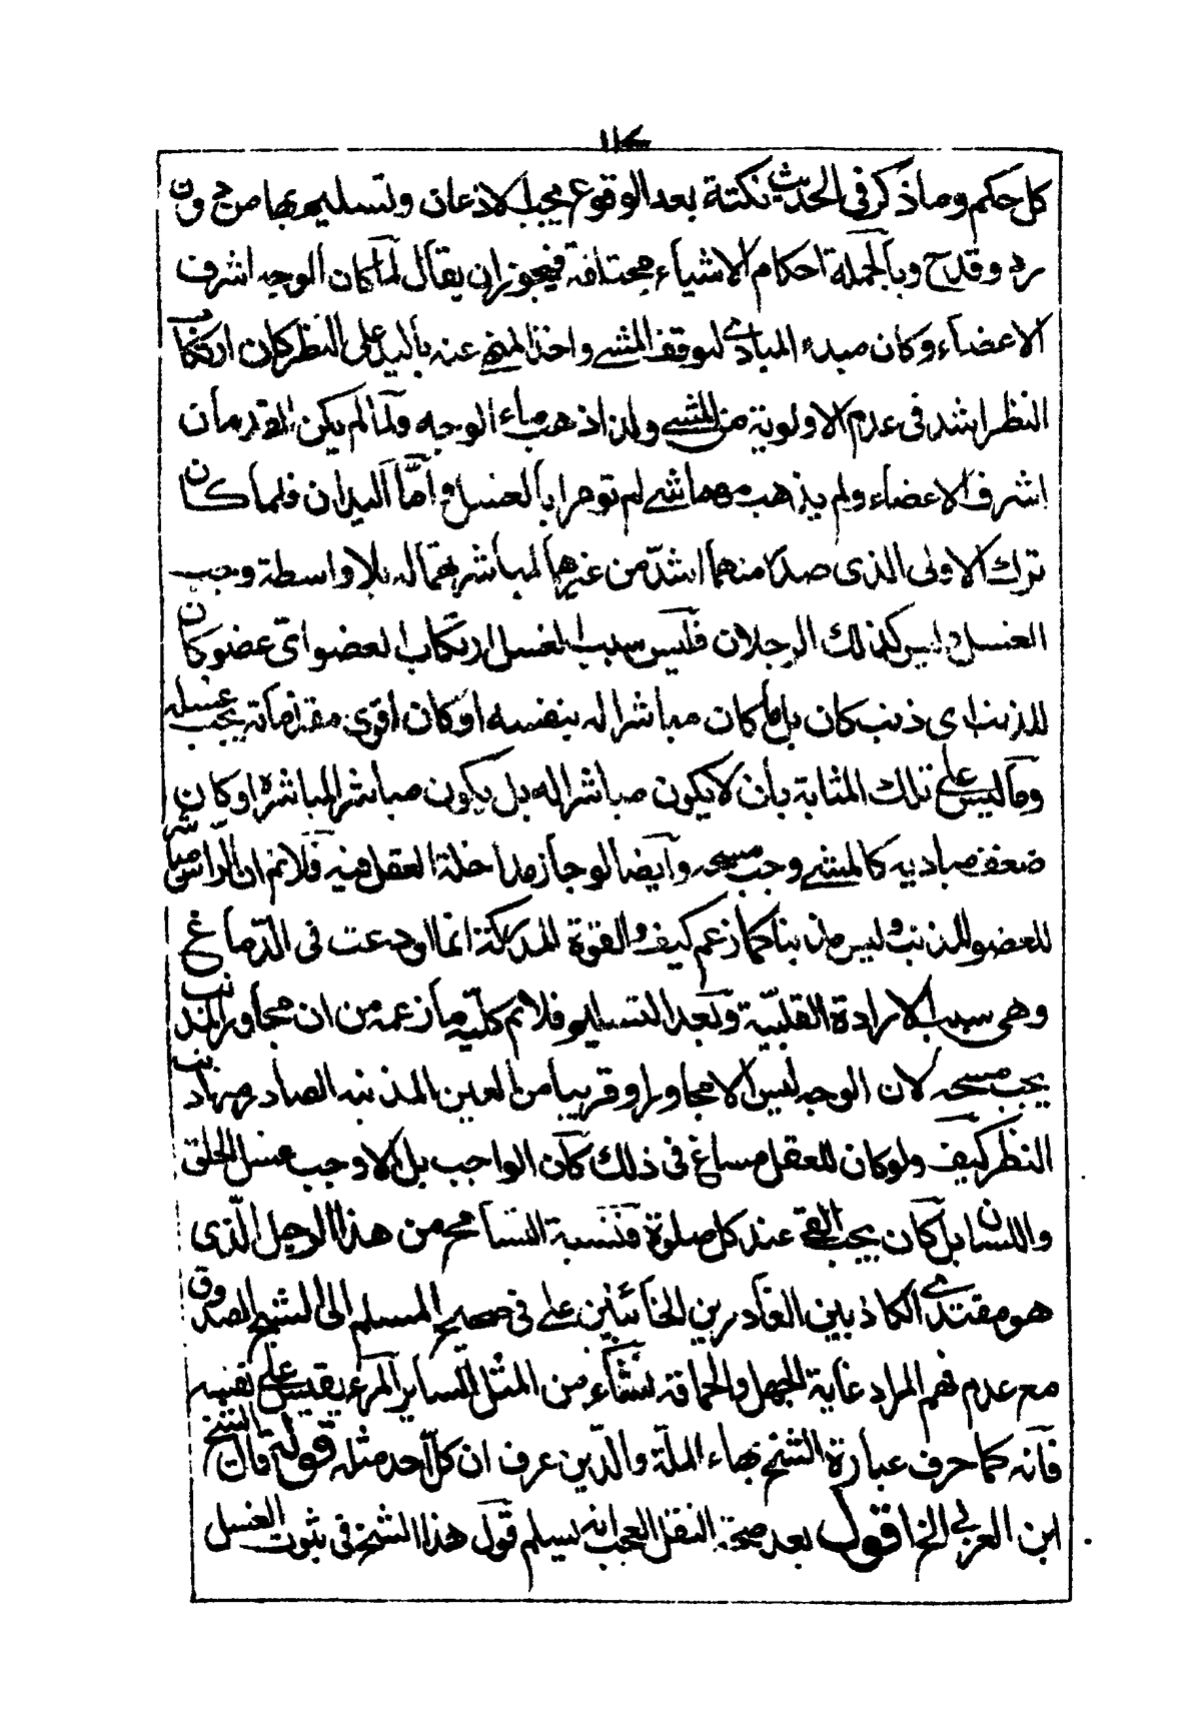 كل حكم وما ذكر في الحديث نكتة بعد الوقوع يجب الاذعان وتسليم بها من دون
رد وقدح وبالجملة احكام الاشياء مختلفة فيجوز ان يقال لما كان الوجه اشرف
الاعضاء وكان مبدء المبادي لتوقف المشي واخذ المنهي عنه باليد على النظر كان ارتكاب
النظر اشد في عدم الاولوية من المشي ولذا ذهب ماء الوجه ولما لم يكن القدمان
اشرف الاعضاء ولم يذهب مهما شي لم تومرا بالغسل واما اليدان فلما كان
ترك الاولى الذي صدر منهما اشد من غيرهما لمباشرتهما له بلا واسطة وجب
الغسل وليس كذلك الرجلان فليس سبب الغسل ارتكاب العضو اي عضو كان
للذنب اي ذنب كان بل ما كان مباشرا له بنفسه او كان اقوى مقدماته يجب غسله
وما ليس على تلك المثابة بان لا يكون مباشرا له بل يكون مباشر المباشرة او كان
ضعف مباديه كالمشي وجب مسحه وايضا لو جاز مداخلة العقل فيه فلانم ان الراس مباشر
للعضو المذنب وليس مذنبا كما زعم كيف والقوة المدركة انما اودعت في الدماغ
وهي سبب الارادة القلبية وبعد التسليم فلانم كلية ما زعمه من ان مجاور المذنب
يجب مسحه لان الوجه ليس الا مجاورا وقريبا من العين المذنبه الصادر منها ذنب
النظر كيف ولو كان للعقل مساغ في ذلك كان الواجب بل الاوجب غسل الحلق
واللسان بل كان يجب القي عند كل صلوة فنسبة التسامح من هذا الرجل الذي
هو مقتدي الكاذبين الغادرين الخائنين على في صحيح المسلم الى الشيخ الصدوق
مع عدم فهم المراد غاية الجهل والحماقة نشاء من المثل السائر المرء يقيس على نفسه
فانه كما حرف عبارة الشيخ بهاء الملة والدين عرف ان كل احد مثله قوله قال الشيخ
ابن العربي الخ اقول بعد صحة النقل العجب انه يسلم قول هذا الشيخ في ثبوت الغسل